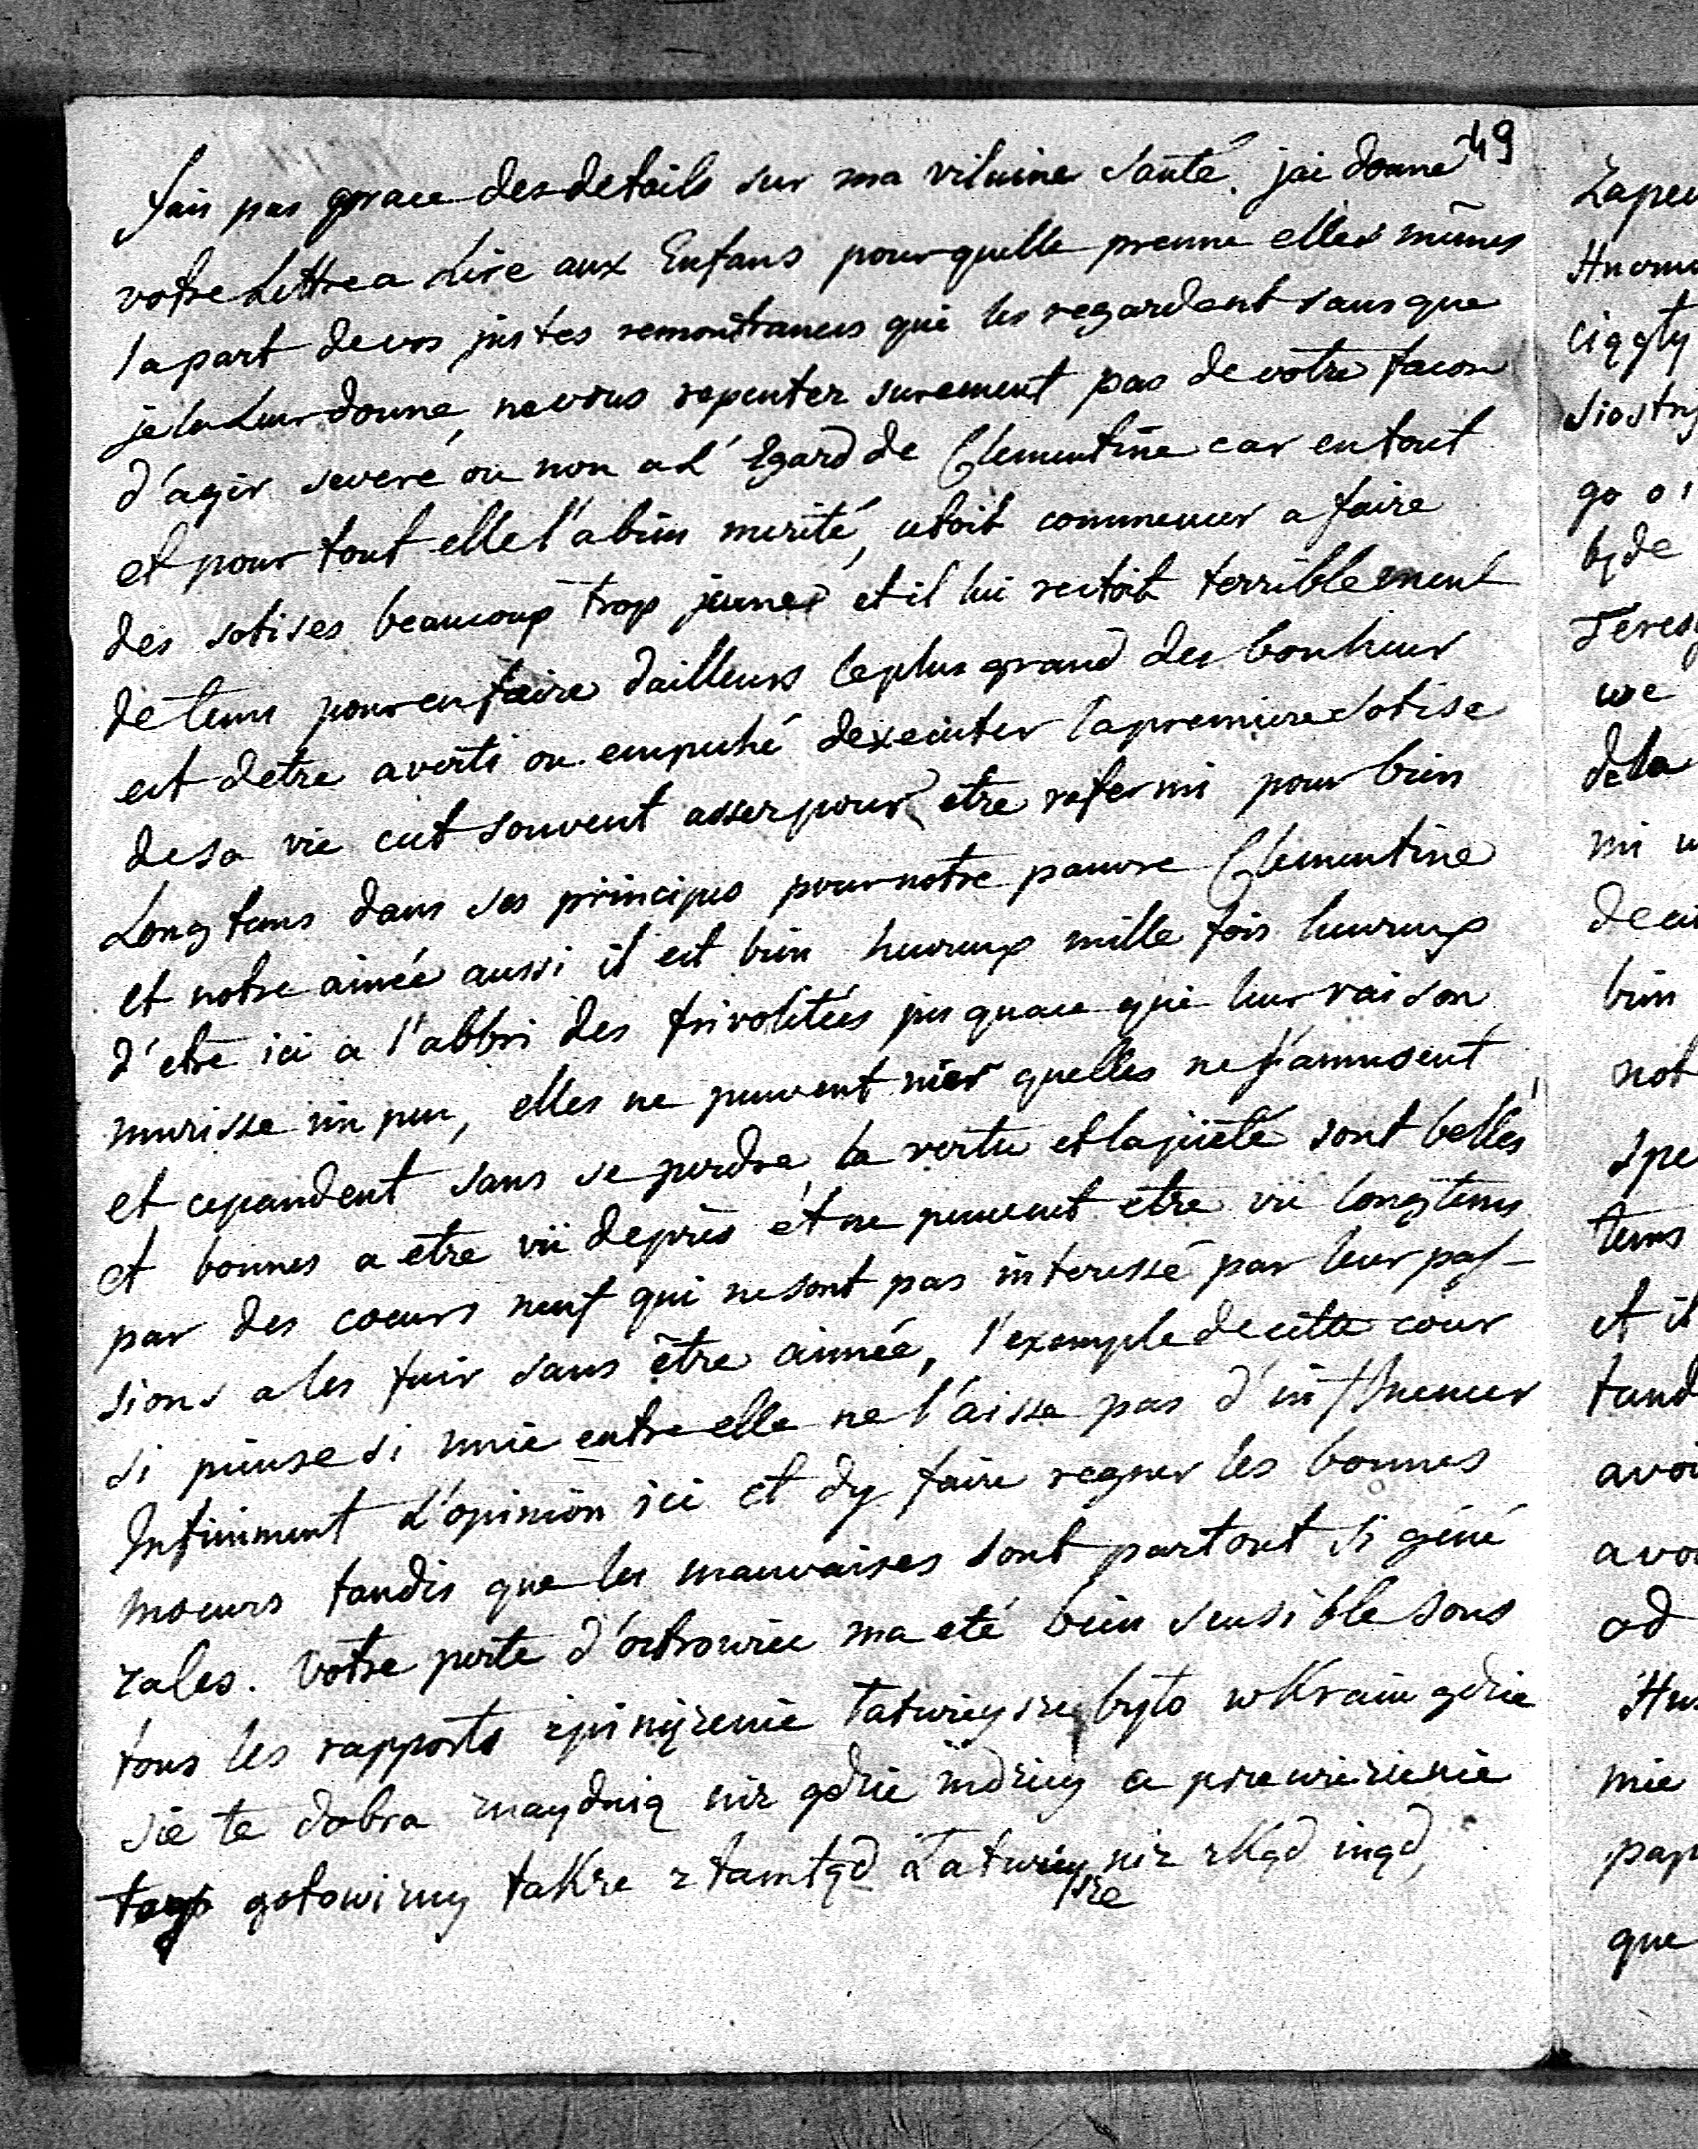 49
fais pas grace des details sur ma vilaine santé. jai donné
votre Lettre a Lire aux Enfans pourquelle prenne elles mêmes
la part de vos justes remontrances qui les regardent sans que
je la Leur donne, ne vous repenter surement pas de votre facon
d'agir severé ou non a L'Egard de Clementine car en tout
et pour tout elle l'a bien merité, c'etoit commencer a faire
des sotises beaucoup trop jeunes et il lui restoit terriblement
de tems pour en faire dailleurs le plus grand des bonheur
est detre averti ou empeché dexecuter la premiere sotise
de sa vie c'est souvent assez pour etre refermi pour bien
Long tems dans ses principes pour notre pauvre Clementine
et notre ainée aussi il est bien heureux mille fois heureux
d'etre ici a l'abbri des frivolitées jusquace que leur raison
murisse un peu, elles ne peuvent nier quelles ne s'amusent
et cepandent sans se perdre, la vertu et la pieté sont belles
et bonnes a etre vü deprès et ne peuvent etre vü longtems
par des coeurs neuf qui ne sont pas interessé par leur pas-
sions a les fuir sans être aimée, l'exemple de cette cour
si pieuse si unie entre elle ne l'aisse pas d'influencer
Infiniment L'opinion ici et dy faire regner les bonnes
moeurs tandis que les mauvaises sont partout si géné
rales. Votre perte d'octrowiec ma eté bien sensible sous
tous les rapports spinięzenie łatwieysze było w Kraiu gdzie
sie te dobra znaydnią niz gdzie indziey a przewiezienie
tego gotowizny takze z tamtąd Łatwieysze niz zkąd inąd,
Zapew
ciągty
siostry
go oi
będe
Teres
we
dela
mi w
bien
not
spe
tems
et il
tand
avoi
avoi
od
mie
pap
que